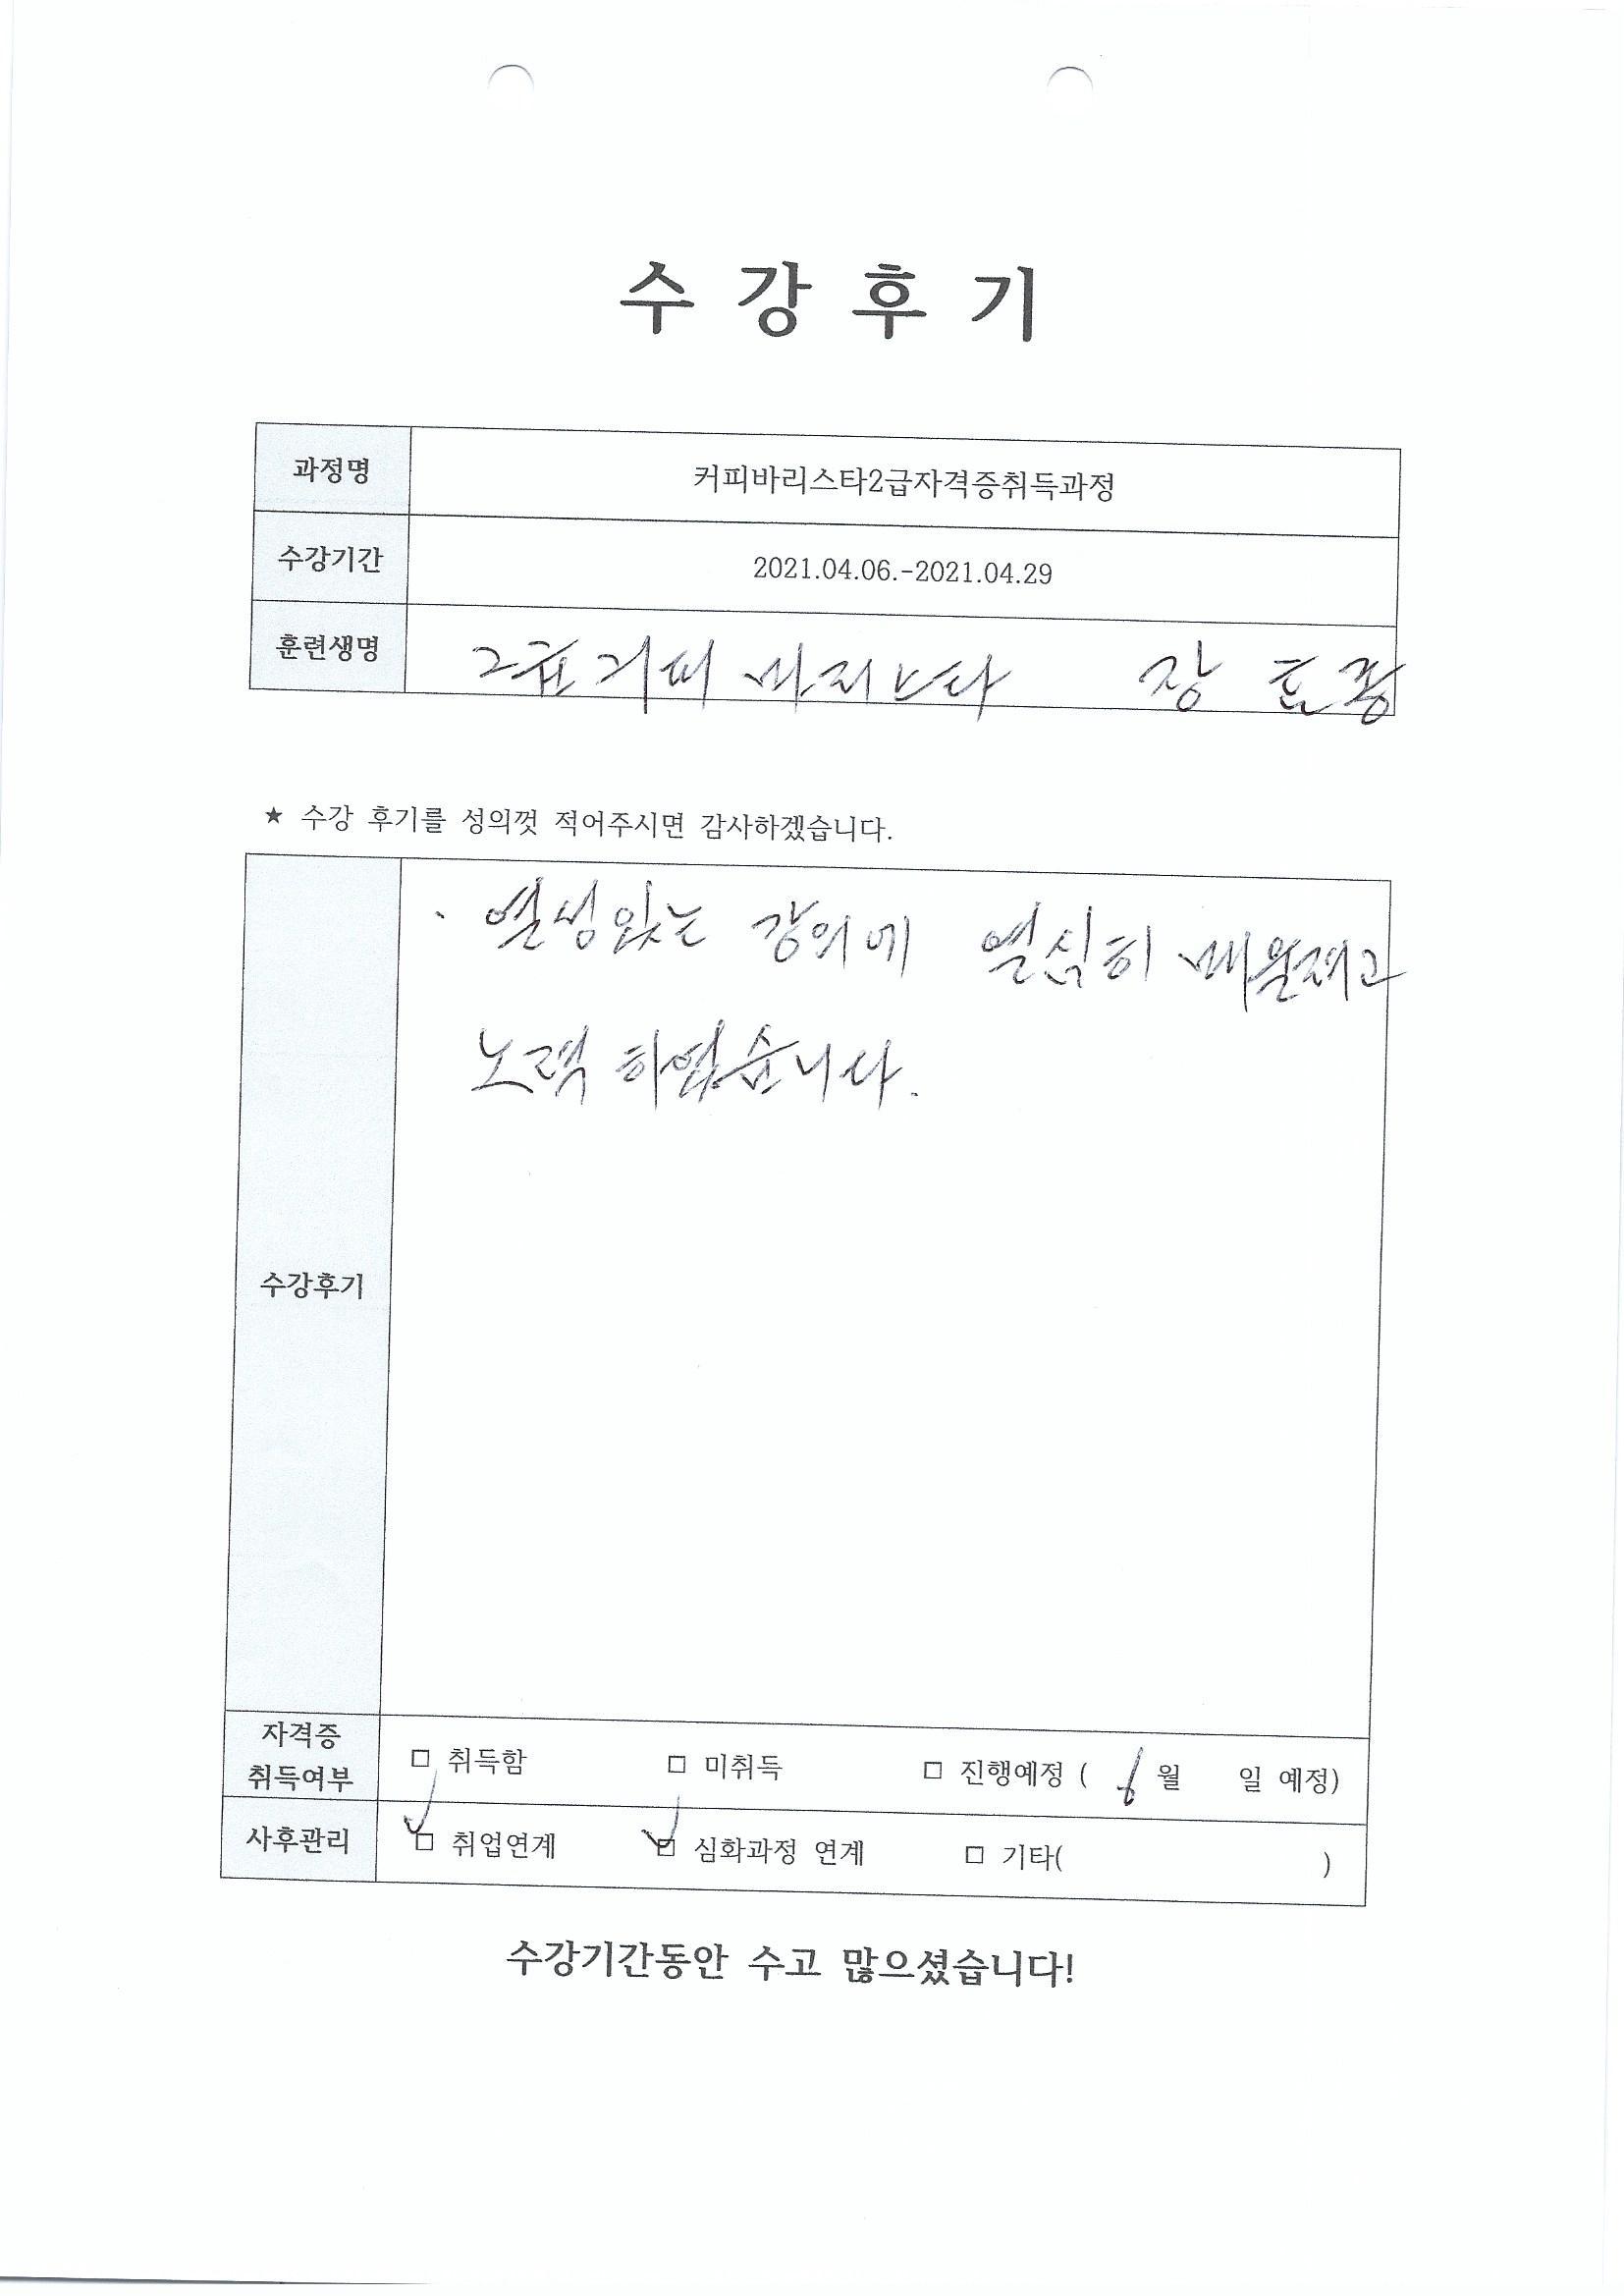 수 강 후 기
과정명 커피바리스타2급자격증취득과정
수강기간 2021.04.06.-2021.04.29
훈련생명 바리스타 장
★ 수강 후기를 성의껏 적어주시면 감사하겠습니다.
· 열성있는 강의에 열심히 배울려고
노력 하였습니다.
수강후기
자격증
취득여부 □ 취득함 □ 미취득 □ 진행예정 ( 6 월 일 예정)
사후관리 ☑ 취업연계 ☑ 심화과정 연계 □ 기타( )
수강기간동안 수고 많으셨습니다!